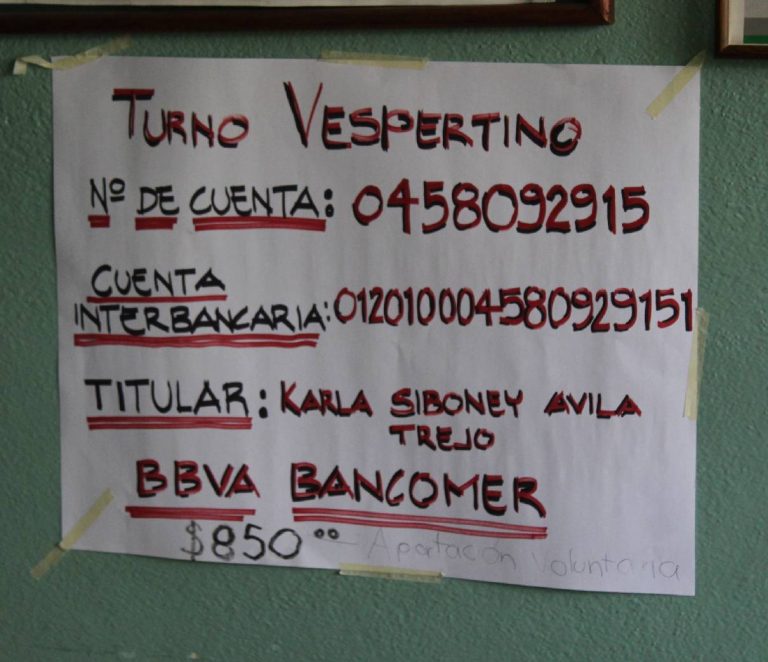 TURNO VESPERTINO
Nº DE CUENTA: 0458092915
CUENTA
INTERBANCARIA: 012010004580929151
TITULAR: KARLA SIBONEY AVILA
TREJO
BBVA BANCOMER
$850.00 - Aportación Voluntaria